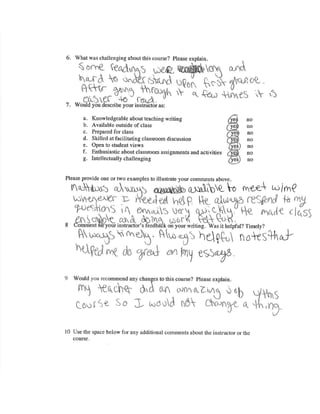 6. What was challenging about this course? Please explain.
Some readings were long and
hard to understand upon first glance.
After going through it a few times it is
easier to read.
7. Would you describe your instructor as:
a. Knowledgeable about teaching writing yes no
b. Available outside of class yes no
c. Prepared for class yes no
d. Skilled at facilitating classroom discussion yes no
e. Open to student views yes no
f. Enthusiastic about classroom assignments and activities yes no
g. Intellectually challenging yes no
Please provide one or two examples to illustrate your comments above.
always avalible to meet w/me
whenever I needed help. He always respend to my
questions in emails very quickly. He made class
enjoyable and doing work felt fun.
8 Comment on your instructor's feedback on your writing. Was it helpful? Timely?
Always timely. Always helpful notes that
helped me do great on my essays.
9 Would you recommend any changes to this course? Please explain.
my teacher did an amazing job w/this
course so I would not change a thing.
10 Use the space below for any additional comments about the instructor or the
course.